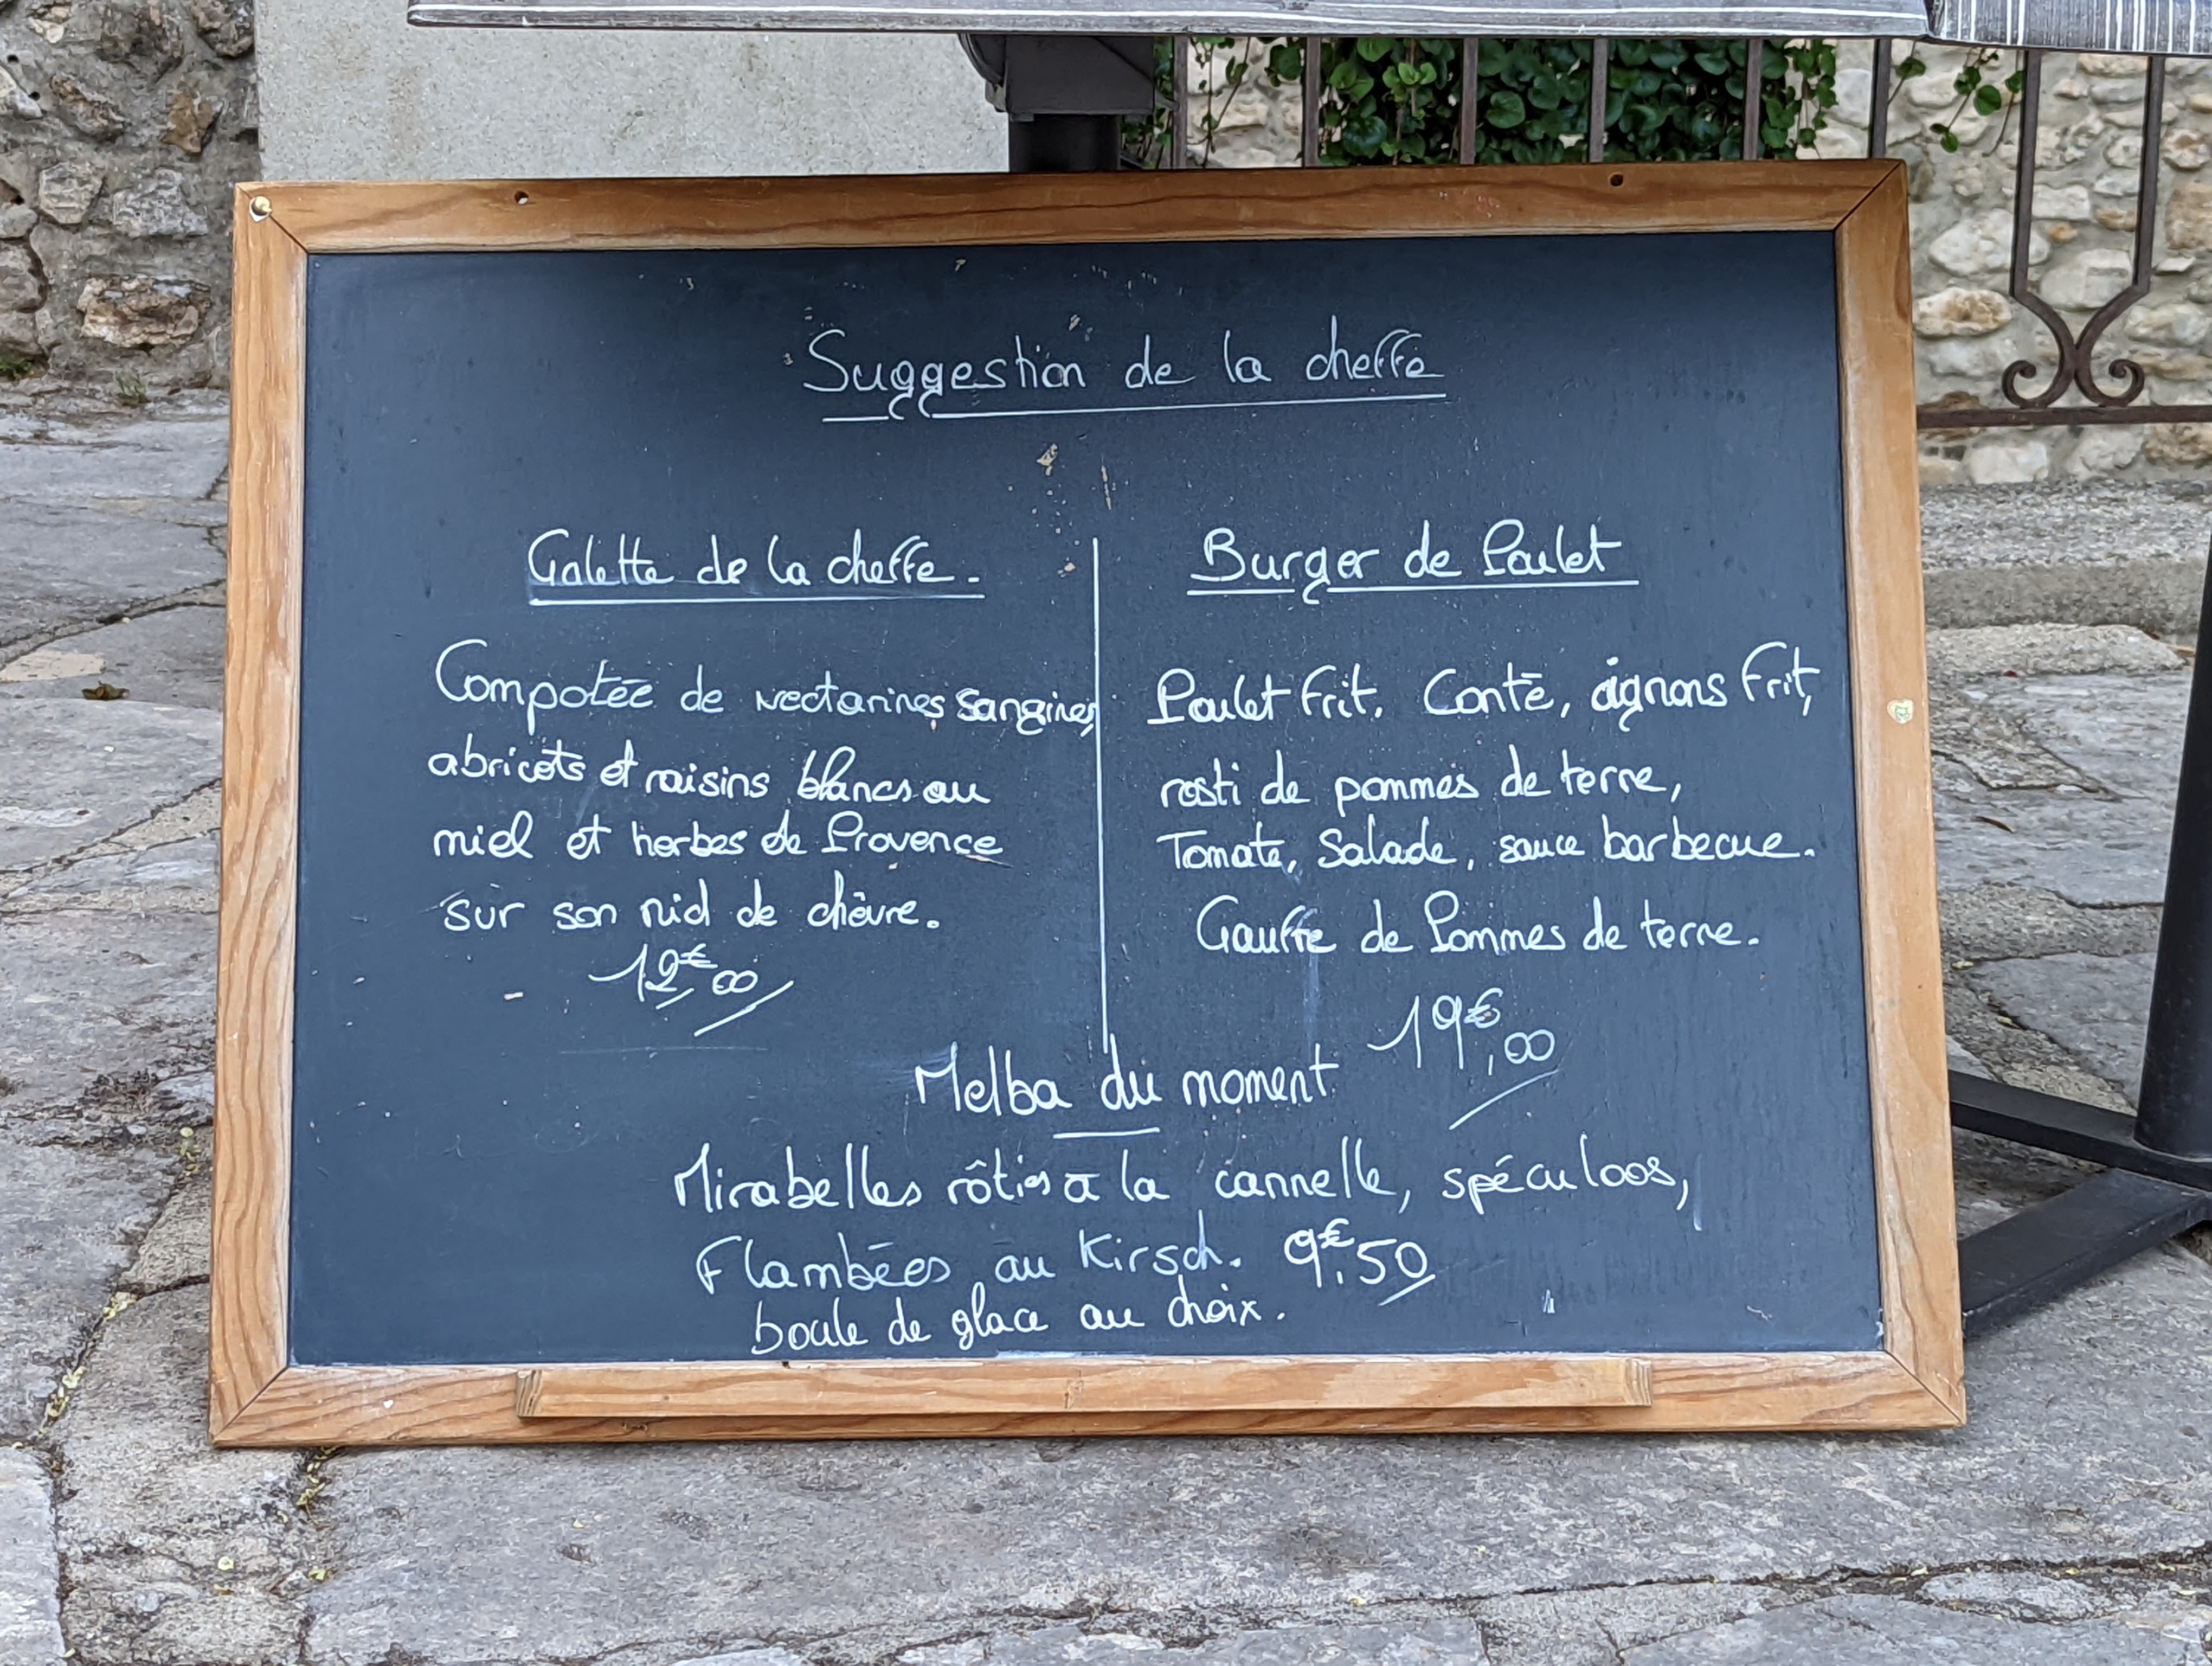 Suggestion de la cheffe
Galette de la cheffe.
Compotée de nectarines sangines,
abricots et raisins blancs au
miel et herbes de Provence
sur son nid de chèvre.
12€00
Burger de Poulet
Poulet frit, Conté, oignons frit,
rosti de pommes de terre,
Tomate, Salade, sauce barbecue.
Gauffe de Pommes de terre.
19€,00
Melba du moment
Mirabelles rôties a la cannelle, spéculoos,
Flambées au Kirsch. 9€.50
boule de glace au choix.